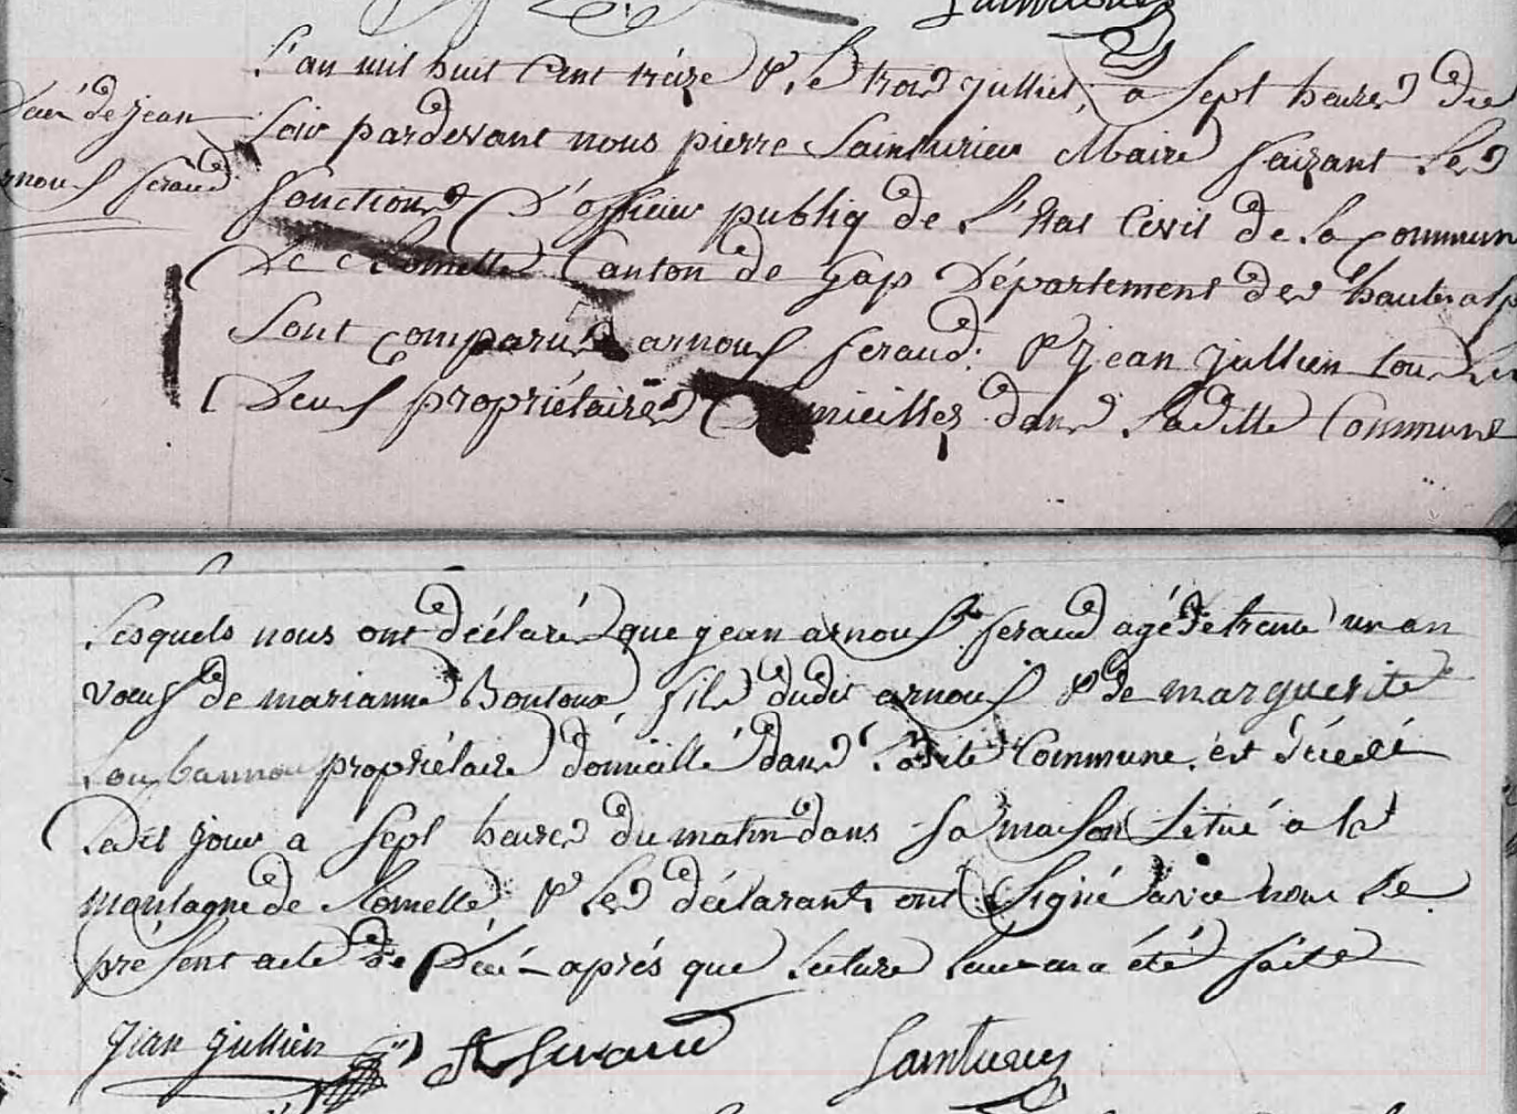 Décè de jean
arnouf feraud
L'an mil huit Cent tréize & le trois jullies, a Sept heures du
Soir pardevant nous pierre Sainturier Maire faizant Les
fonctions D'officier publiq de L'Etat Civil de La Commune
De Romette Canton de Gap Département des hautes alp
Sont comparus arnouf feraud. & jean jullien tous Les
Deus propriétaires Domicilles dans Laditte Commune
Lesquels nous ont déclaré que jean arnouf feraud agé De trente un an
vœuf de marianne Boutoux fils dudit arnouf & de marguerite
propriétaire domicillé dans Ladite Commune. est décédé
Ledit jour a sept heures du matin dans sa maison situé a la
montagne de Romette, & Les déclarants ont Signé avec nous Le
présent acte De Décè après que Lecture leur en a été faite
jean jullien feraud Sainturier